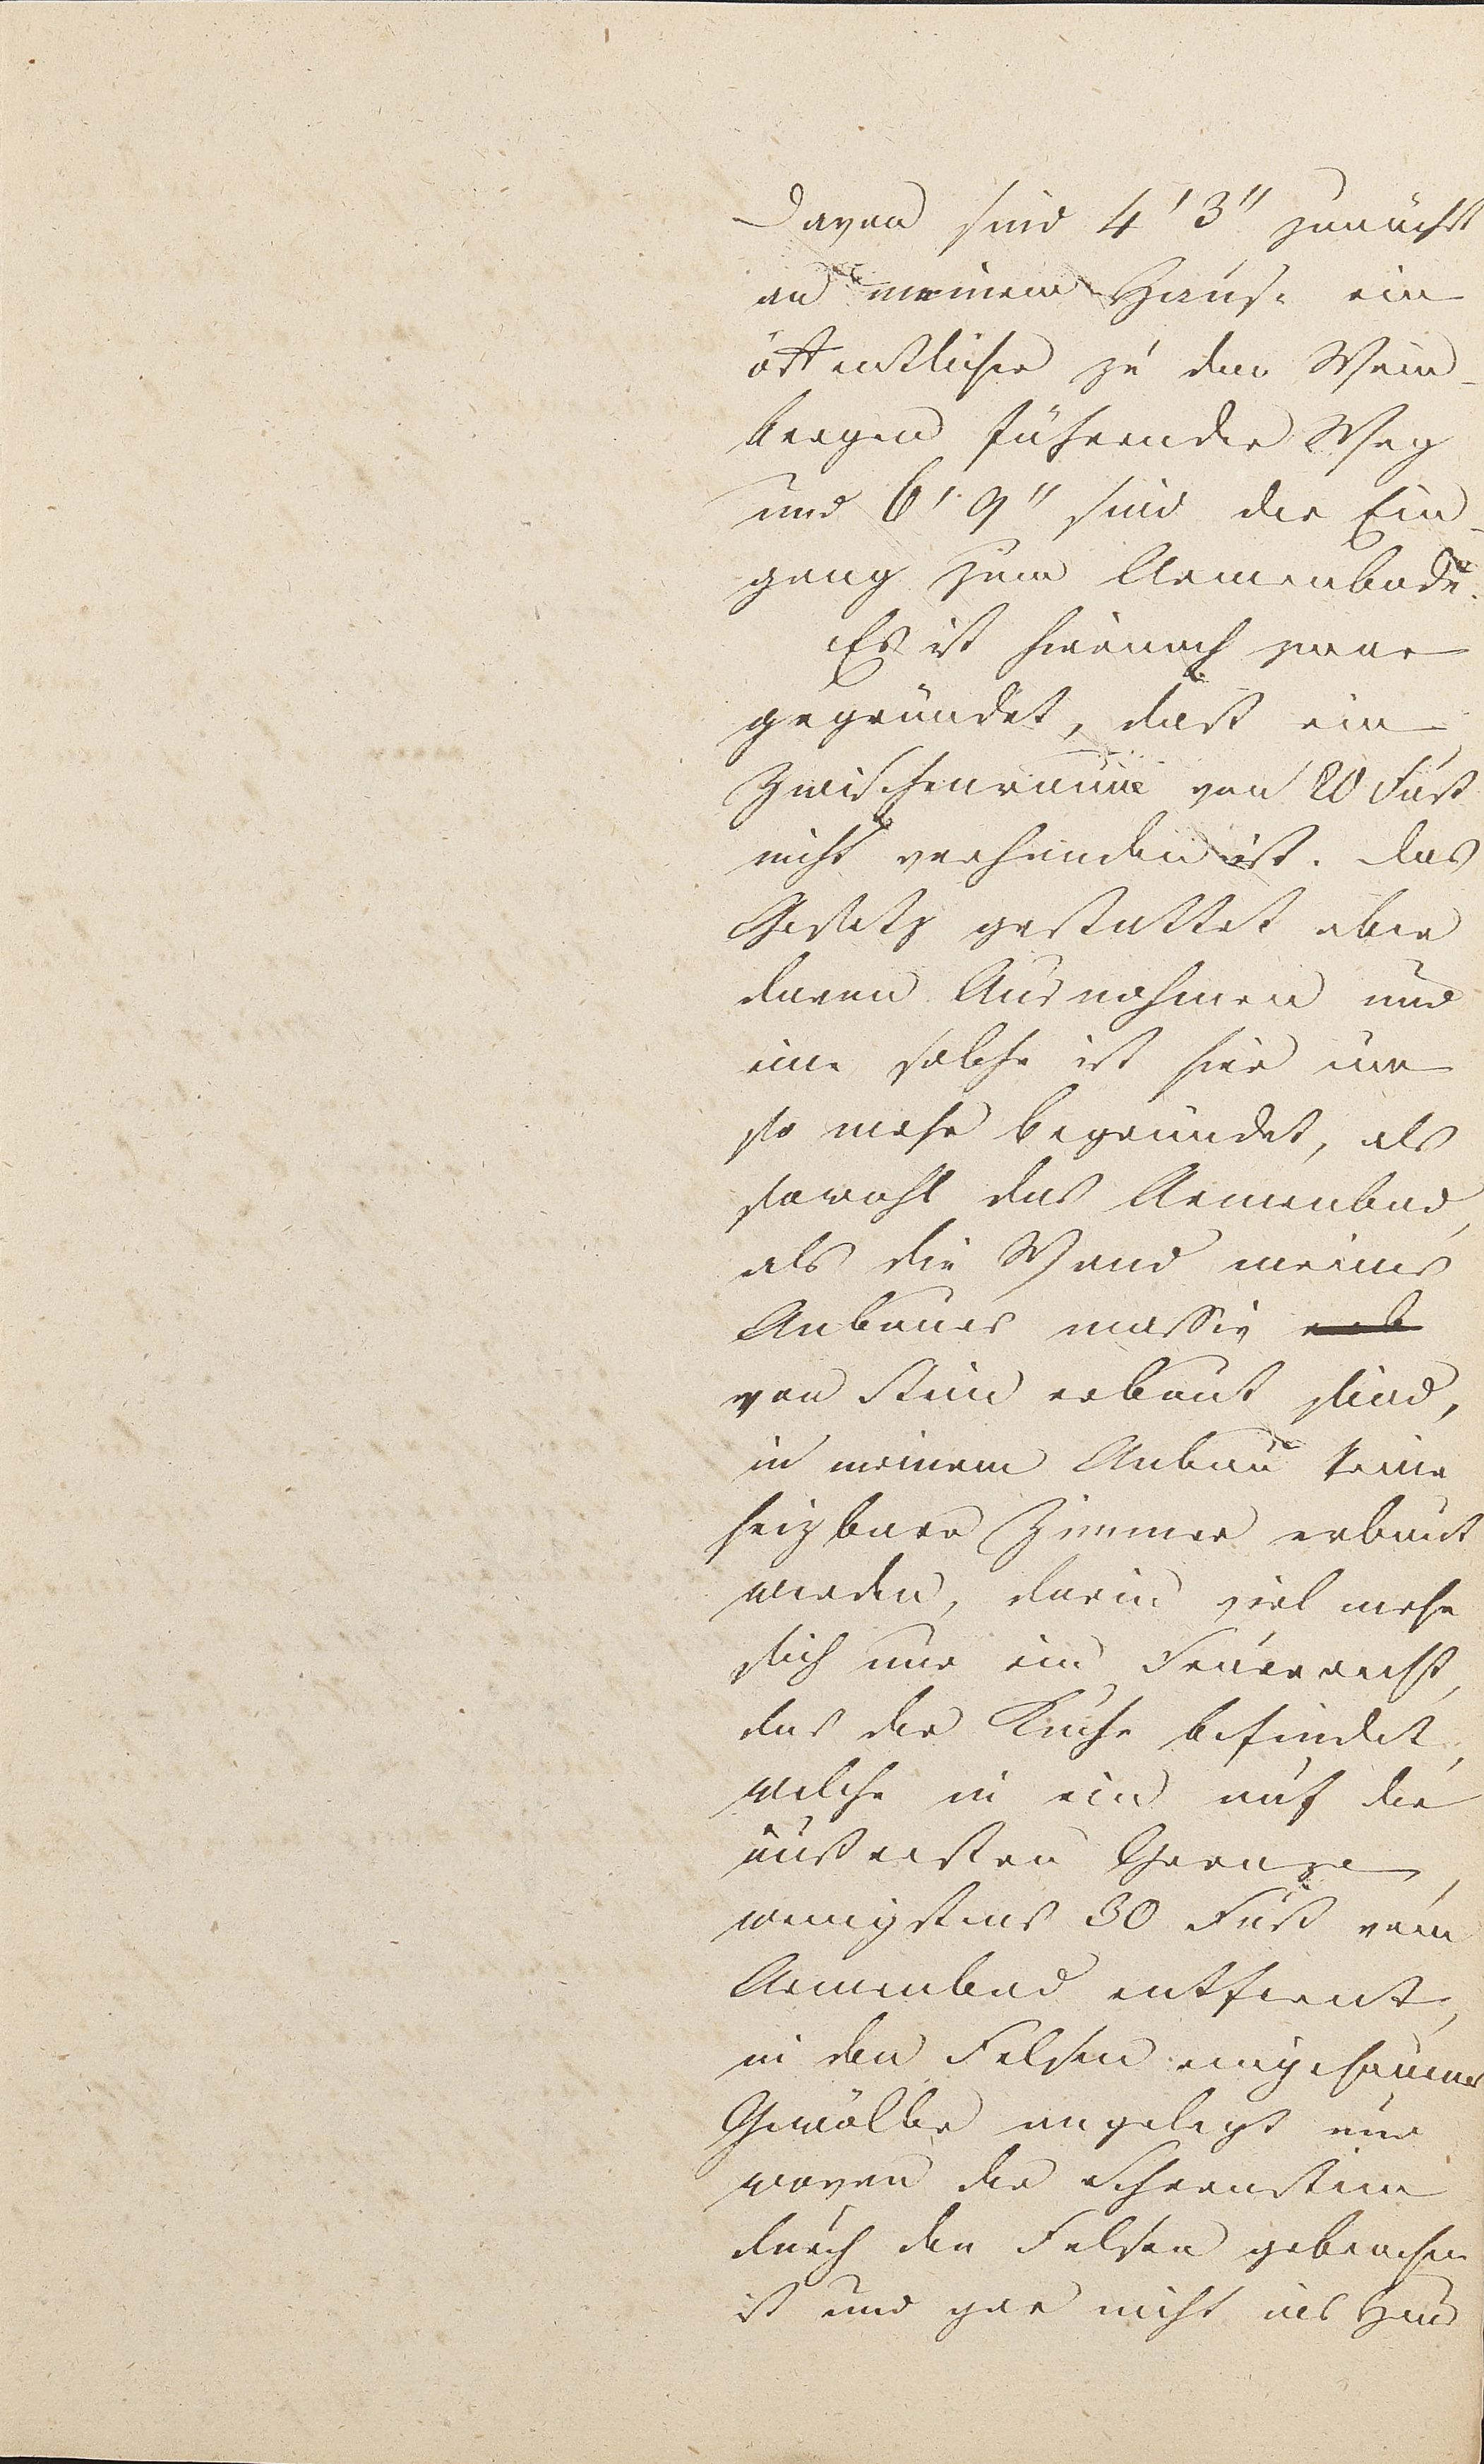 Davon sind 4' 3" zunächst
an meinem Hause ein
öffentlicher zu den Wein-
bergen führender Weg
und 6' 9" sind der Ein-
gang zum Armenbade.
Es ist hiernach zwar
gegründet, dast ein
Zwischenraum von 20 Fust
nicht vorhanden ist. das
Gesetz gestattet aber
davon Ausnahmen und
eine solche ist hier um
so mehr begründet, als
sowohl das Armenbad,
als die Wand meines
Anbaues massiv
von Stein erbaut sind,
in meinem Anbau keine
heizbare Zimmer erbaut
werden, darin viel mehr
sich nur ein Feuerrecht,
das der Küche befindet,
welche in ein auf der
äußersten Grenze,
wenigstens 30 Fuß vom
Armenbad entfernt,
in den Felsen eingehauenes
Gewölbe angelegt und
wovon der Schornstein
durch den Felsen gebrochen
ist und gar nicht ins Haus